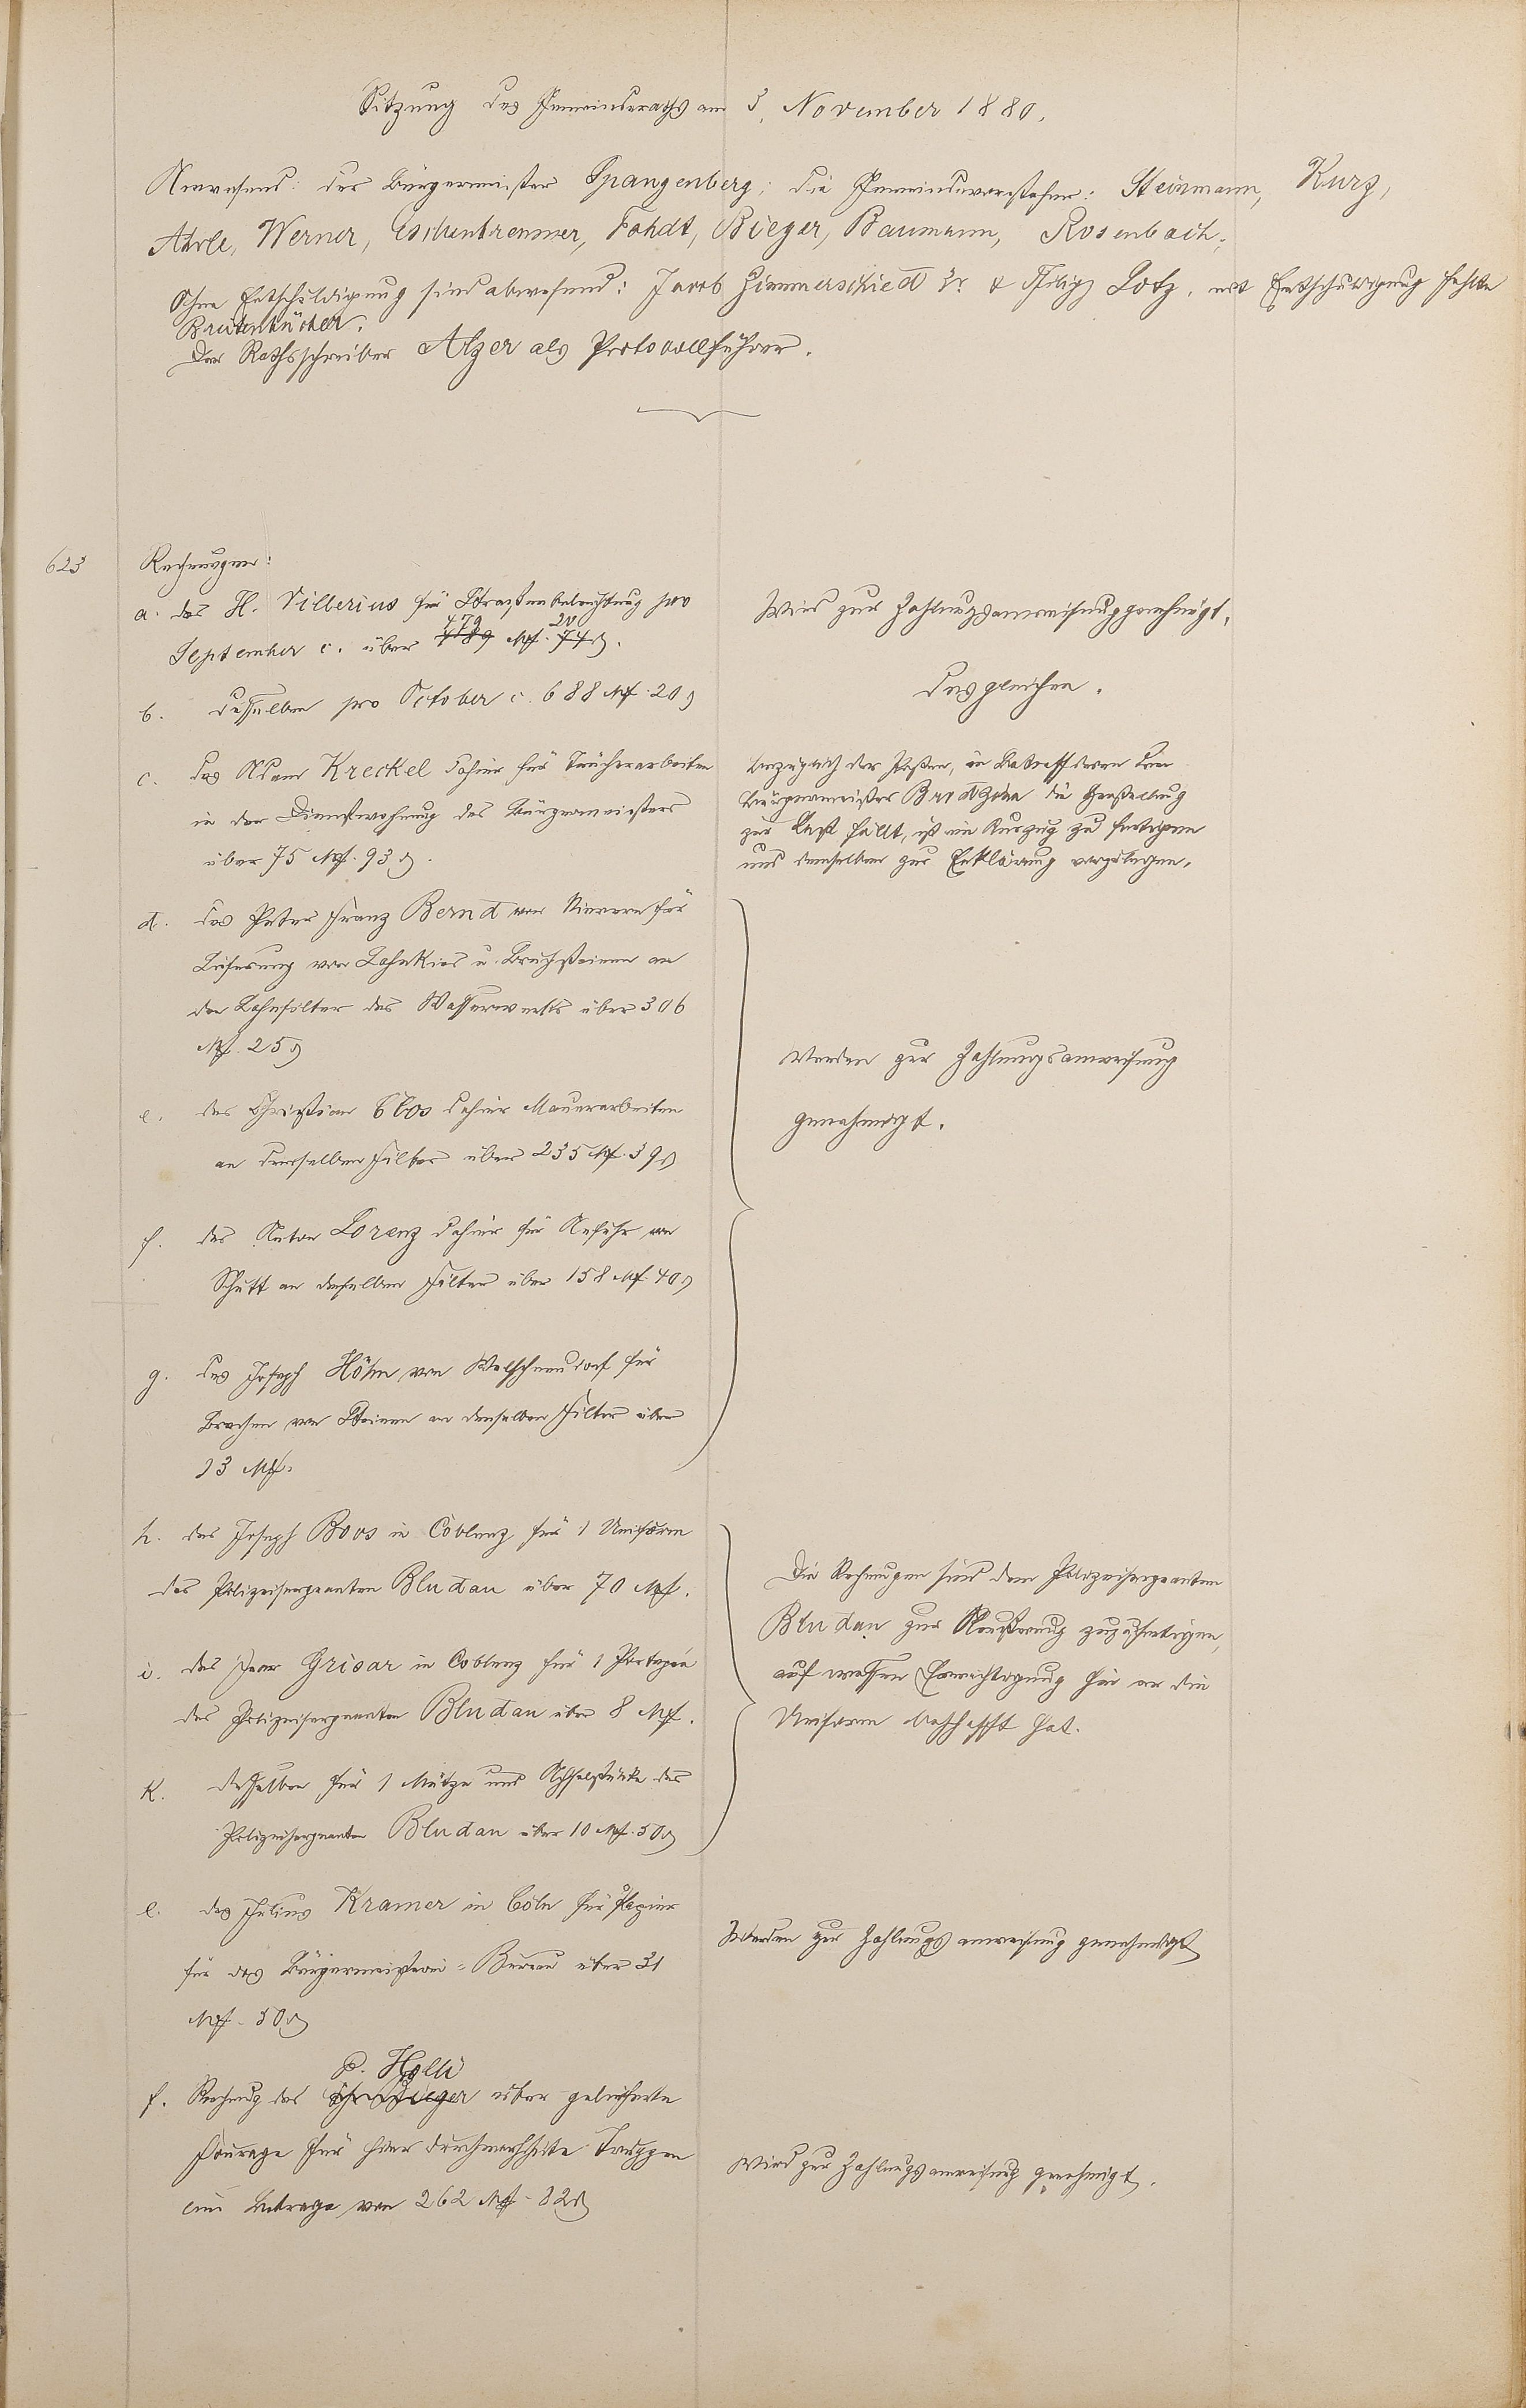 Sitzung des Gemeinderaths am 3. November 1880.
Anwesend: der Bürgermeister Spangenberg; die Gemeindevorsteher: Steinmann, Kurz,
Ahrle, Werner, Eschenbrenner, Fohdt, Bieger, Baumann, Rosenbach;
Ohne Entschuldigung sind abwesend: Jacob Zimmerschied Ir. & Philipp Lotz, mit Entschuldigung fehlte
Breitenbücher.
Der Rathsschreiber Alzer als Protocollführer.
623
Rechnungen:
a. des H. Vilberius für Straßenbeleuchtung pro
September c. über 479 Mf. 20 ₰.
Wird zur Zahlungsanweisung genehmigt.
b. desselben pro October c. 688 Mf. 20 ₰
Desgleichen.
c. des Adam Kreckel dahier für Tüncherarbeiten
in der Dienstwohnung des Bürgermeisters
über 75 Mf. 93 ₰.
bezüglich der Posten, in Betreff deren dem
Bürgermeister die Herstellung
zur Last fällt, ist ein Auszug zu fertigen
und demselben zur Erklärung vorzulegen.
d. des Peter Franz Bernd von Nievern für
Lieferung von Lahnkies u. Bruchsteinen an
den Lahnfilter des Wasserwerks über 306
Mf. 25 ₰
e. des Christian Clos dahier Mauerarbeiten
an demselben Filter über 235 Mf. 39 ₰
f. des Anton Lorenz dahier für Anfuhr von
Schutt an denselben Filter über 158 Mf. 40 ₰
g. des Joseph Höhn von Welschneudorf für
Brechen von Steinen an denselben Filter über
13 Mf.
Werden zur Zahlungsanweisung
genehmigt.
h. des Joseph Boos in Coblenz für 1 Uniform
des Polizeisergeanten Bludau über 70 Mf.
i. des Jean Grisar in Coblenz für 1 Portepée
des Polizeisergeanten Bludau über 8 Mf.
k. desselben für 1 Mütze und Achselstücke des
Polizeisergeanten Bludau über 10 Mf. 50 ₰
Die Rechnungen sind dem Polizeisergeanten
Bludau zur Aeußerung zuzufertigen,
auf wessen Ermächtigung hin er die
Uniform beschafft hat.
l. des Julius Kramer in Cöln für Papier
für das Bürgermeisterei-Bureau über 31
Mf. 50 ₰
Werden zur Zahlungsanweisung genehmigt
P. Holli
f. Rechnung des Chr. Bieger über gelieferte
Fourage für hier durchmarschirte Truppen
im Betrage von 262 Mf. 82 ₰
Wird zur Zahlungsanweisung genehmigt.